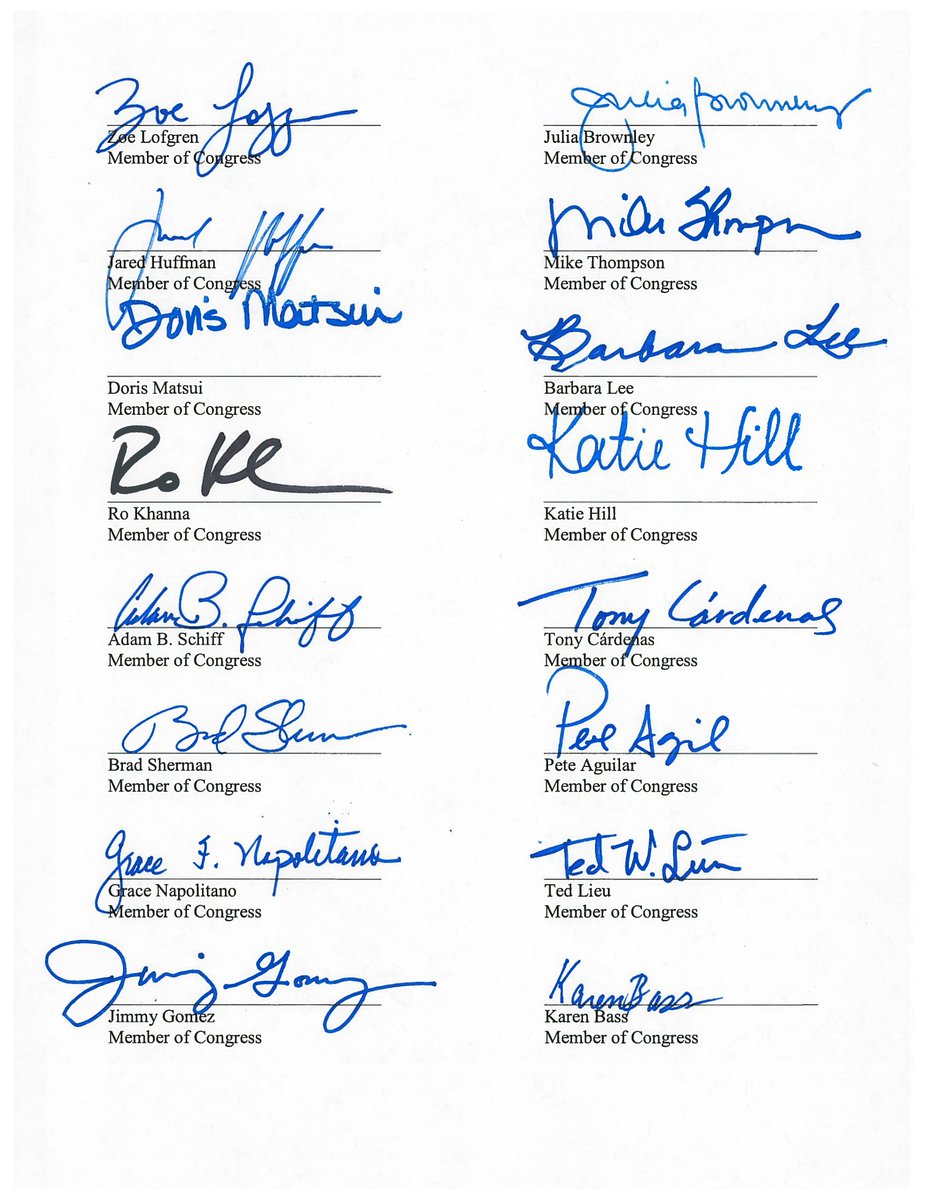 Zoe Lofgren
Julia Brownley
Zoe Lofgren
Member of Congress
Julia Brownley
Member of Congress
Mike Thompson
Jared Huffman
Member of Congress
Mike Thompson
Member of Congress
Doris Matsui
Barbara Lee
Doris Matsui
Member of Congress
Barbara Lee
Member of Congress
Ro Kh
Katie Hill
Ro Khanna
Member of Congress
Katie Hill
Member of Congress
Adam B. Schiff
Tony Cárdenas
Adam B. Schiff
Member of Congress
Tony Cárdenas
Member of Congress
Brad Sherman
Pete Aguilar
Brad Sherman
Member of Congress
Pete Aguilar
Member of Congress
Grace F. Napolitano
Ted W. Lieu
Grace Napolitano
Member of Congress
Ted Lieu
Member of Congress
Jimmy Gomez
Karen Bass
Jimmy Gomez
Member of Congress
Karen Bass
Member of Congress